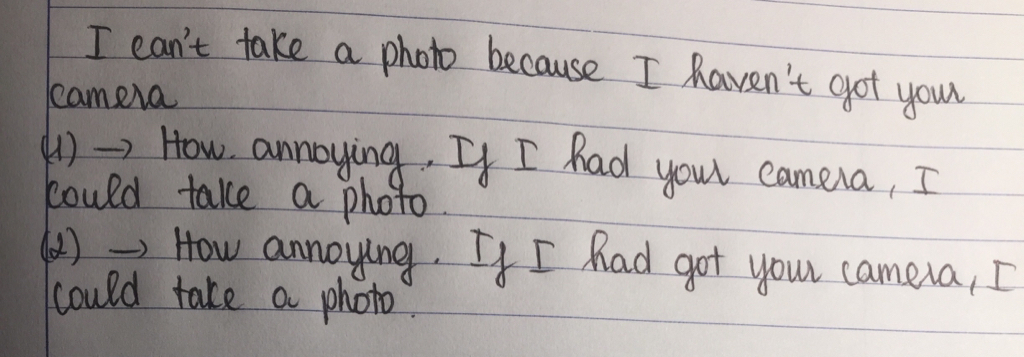 I can't take a photo because I haven't got your
camera
(1) → How annoying. If I had your camera, I
could take a photo.
(2) → How annoying. If I had got your camera, I
could take a photo.